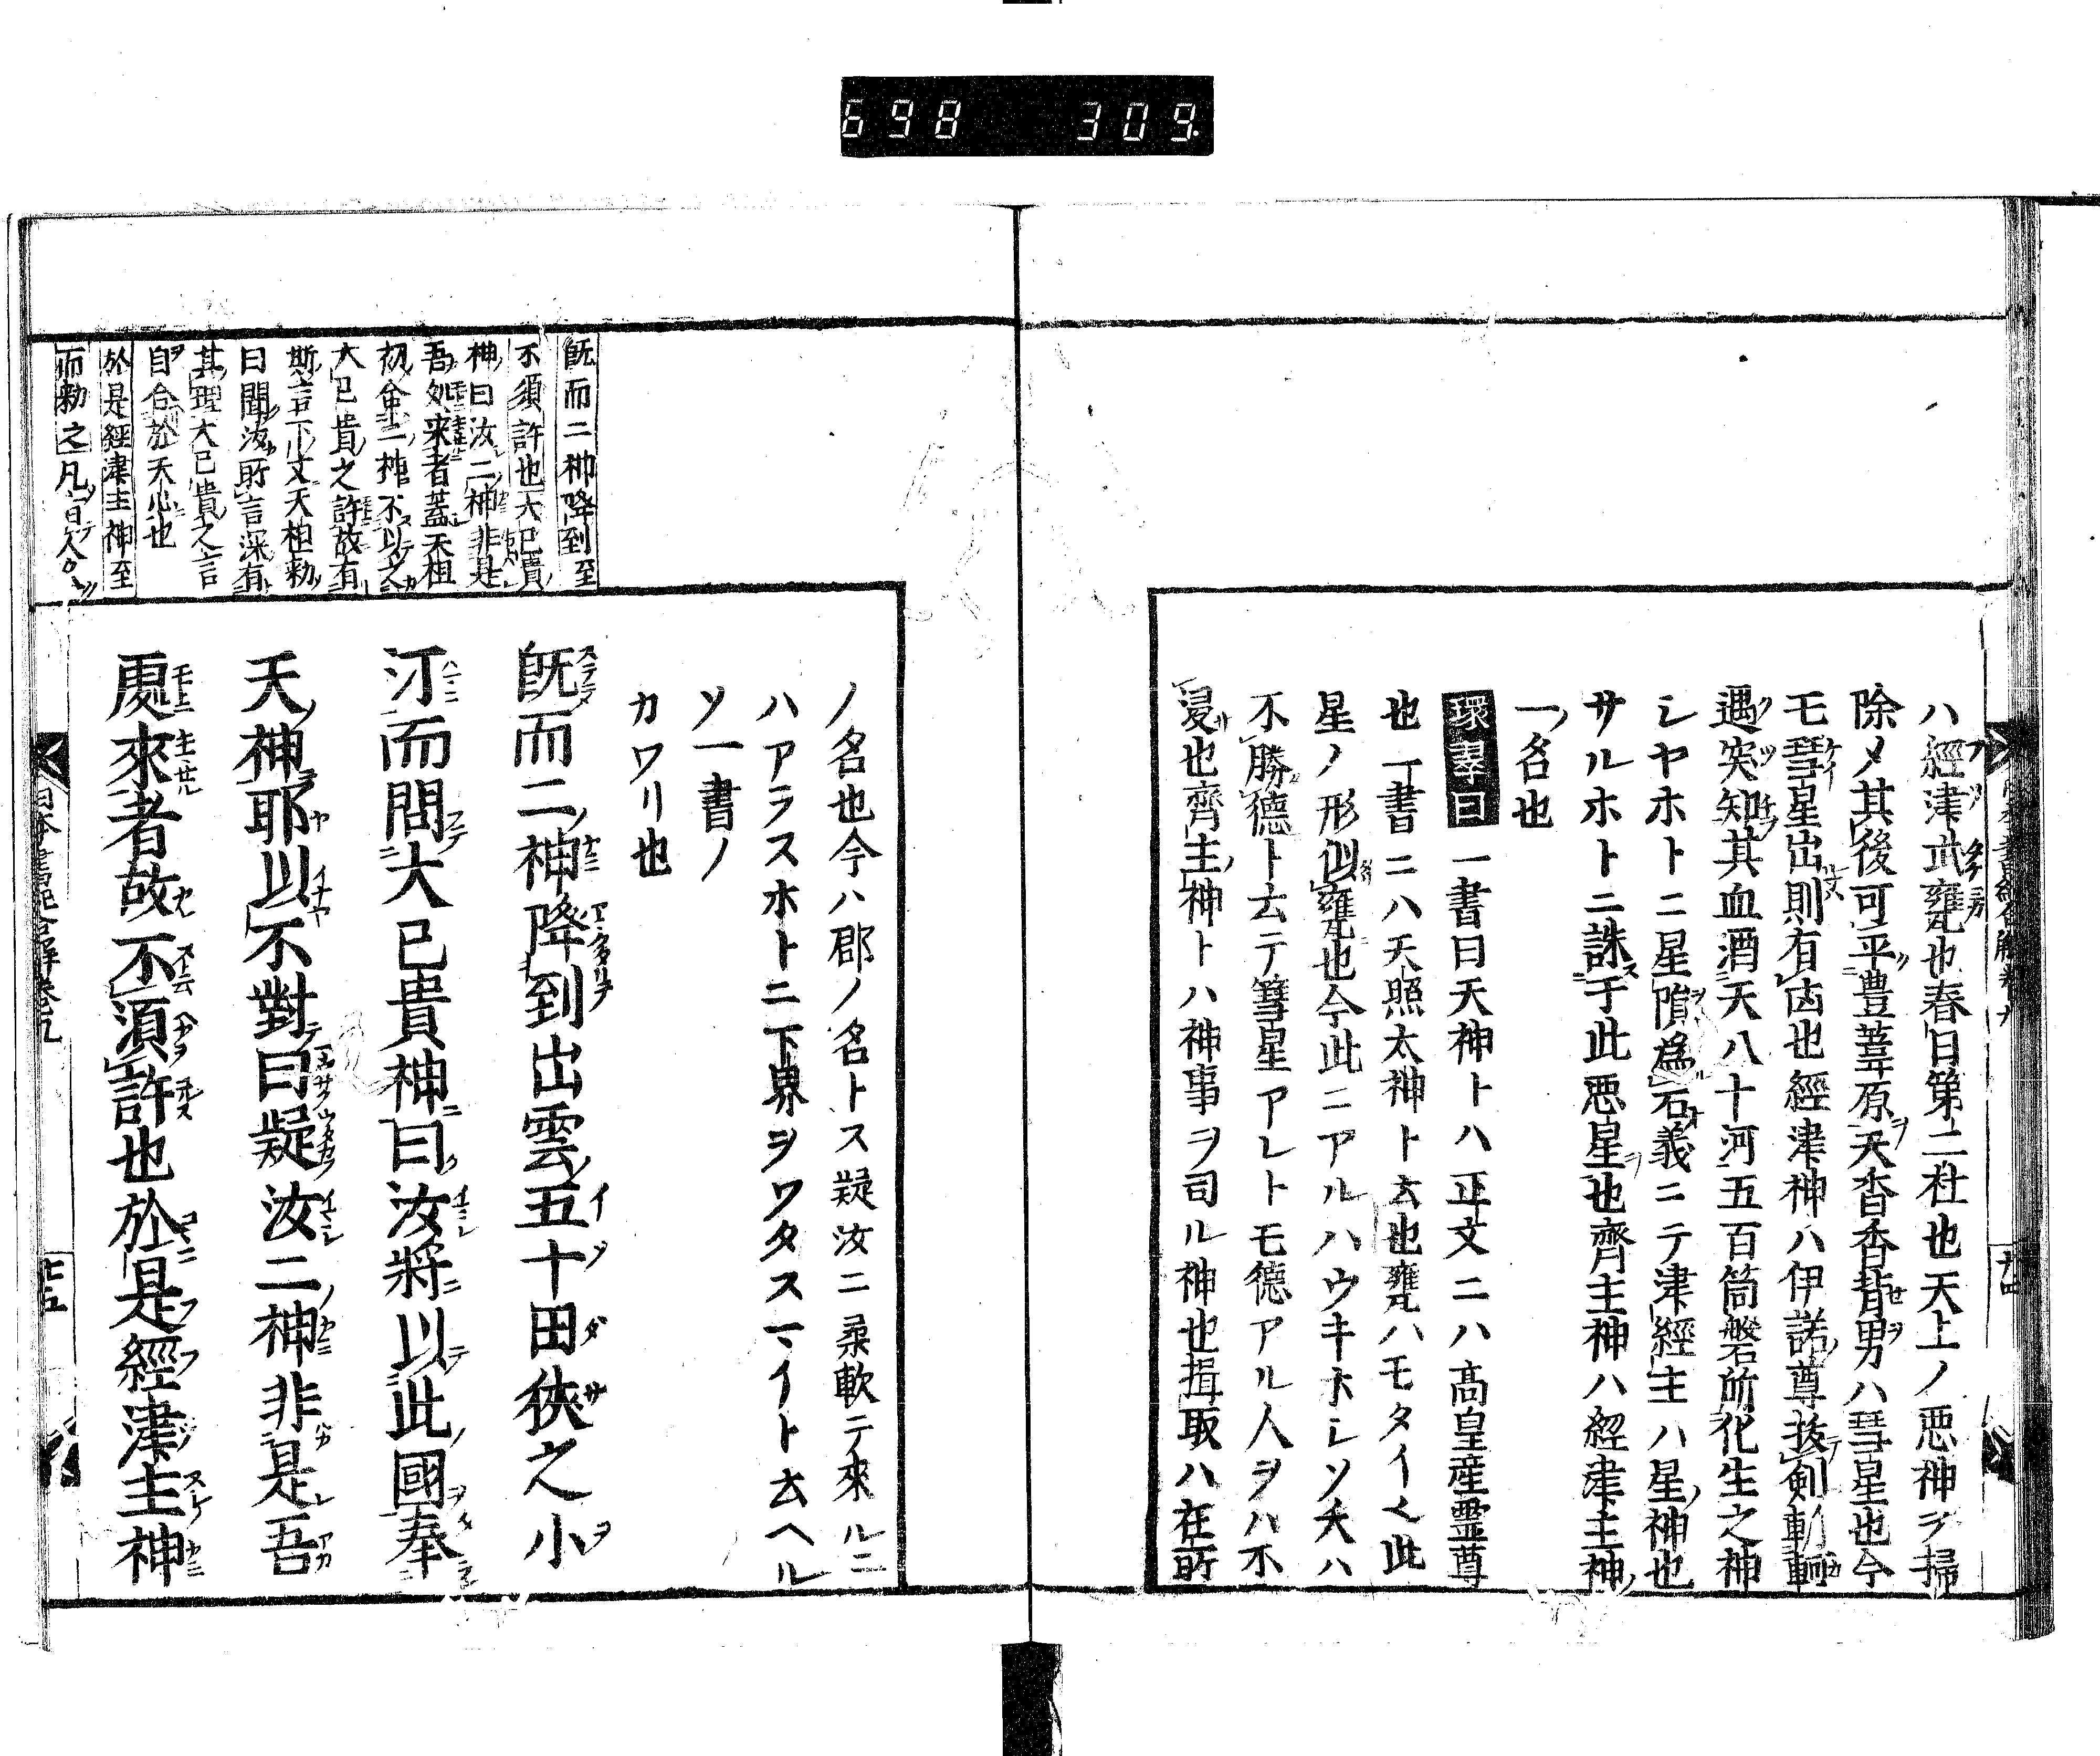 698 309
ハ經津武甕也春日第二社也天上ノ悪神ヲ掃
除メ其後可平豊葦原天香香背男ハ彗星也今
モ彗星出則有凶也經津神ハ伊諾尊抜剣斬軻
遇突知其血洒天八十河五百箇磐石所化生之神
シヤホトニ星隕為石義ニテ津經主ハ星神也
サルホトニ誅于此悪星也齊主神ハ經津主神
一名也
環翠曰一書曰天神トハ正文ニハ高皇産霊尊
也一書ニハ天照太神ト云也甕ハモタイ也此
星ノ形似甕也今此ニアルハウキホシソ夭ハ
不勝德ト云テ篲星アレトモ德アル人ヲハ不
浸也齊主神トハ神事ヲ司ル神也揖取ハ在所
ノ名也今ハ郡ノ名トス疑汝ニ柔軟テ來ルニ
ハアラスホトニ下界ヲワタスマイト云ヘル
ソ一書ノ
カワリ也
既而二神降到出雲五十田狹之小
汀而問大己貴神曰汝將以此國奉
天神耶以不對曰疑汝二神非是吾
處來者故不須許也於是經津主神
既而二神降到至
不須許也大己貴
神曰汝二神非是
吾処来者蓋天祖
初命二神不以之
大己貴之許故有
斯言下文天祖勅
曰聞汝所言深有
其理大己貴之言
自合於天心也
於是經津主神至
而勅之凡
日本書紀合解巻九
廿五